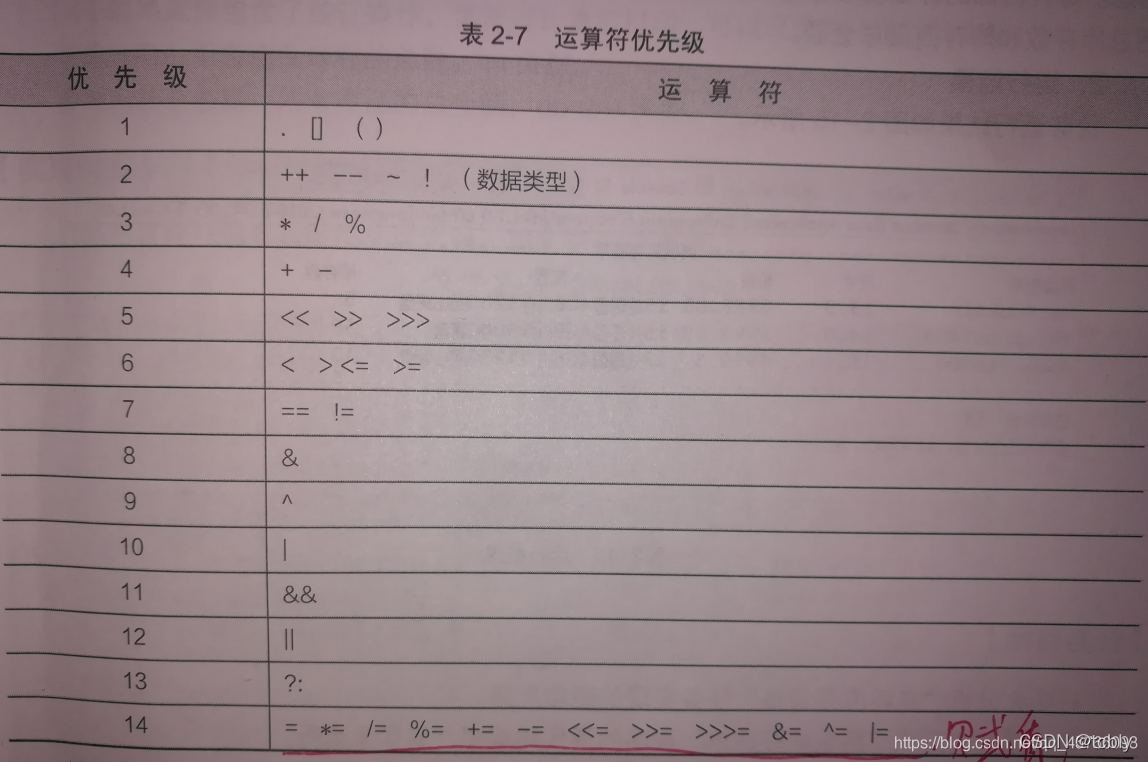 表 2-7 运算符优先级
优 先 级 运 算 符
1 . [] ( )
2 ++ -- ~ ! (数据类型)
3 * / %
4 + -
5 << >> >>>
6 < > <= >=
7 == !=
8 &
9 ^
10 |
11 &&
12 ||
13 ?:
14 = *= /= %= += -= <<= >>= >>>= &= ^= |=